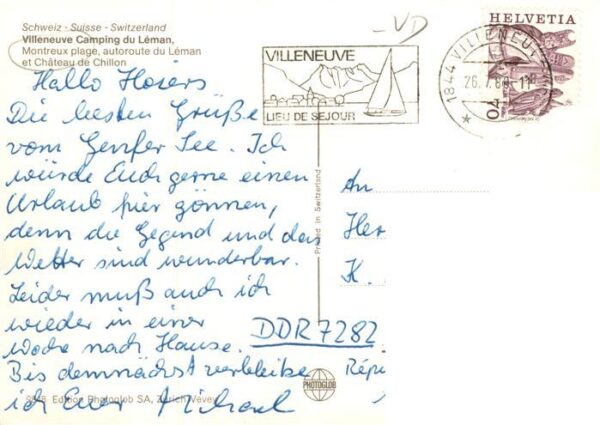 Schweiz - Suisse - Switzerland
Villeneuve Camping du Léman,
Montreux plage, autoroute du Léman
et Château de Chillon
Hallo Hoiers
Die besten Grüße
vom Genfer See. Ich
würde Euch gerne einen
Urlaub hier gönnen,
denn die Gegend und das
Wetter sind wunderbar.
Leider muß auch ich
wieder in einer
Woche nach Hause.
Bis demnächst verbleibe
ich Euer Michael
Edition Photoglob SA, Zürich/Vevey
Printed in Switzerland
PHOTOGLOB
VD
VILLENEUVE
LIEU DE SEJOUR
1844 VILLENEU
26.7.8
HELVETIA
An
Her
K.
DDR 7282
Répu